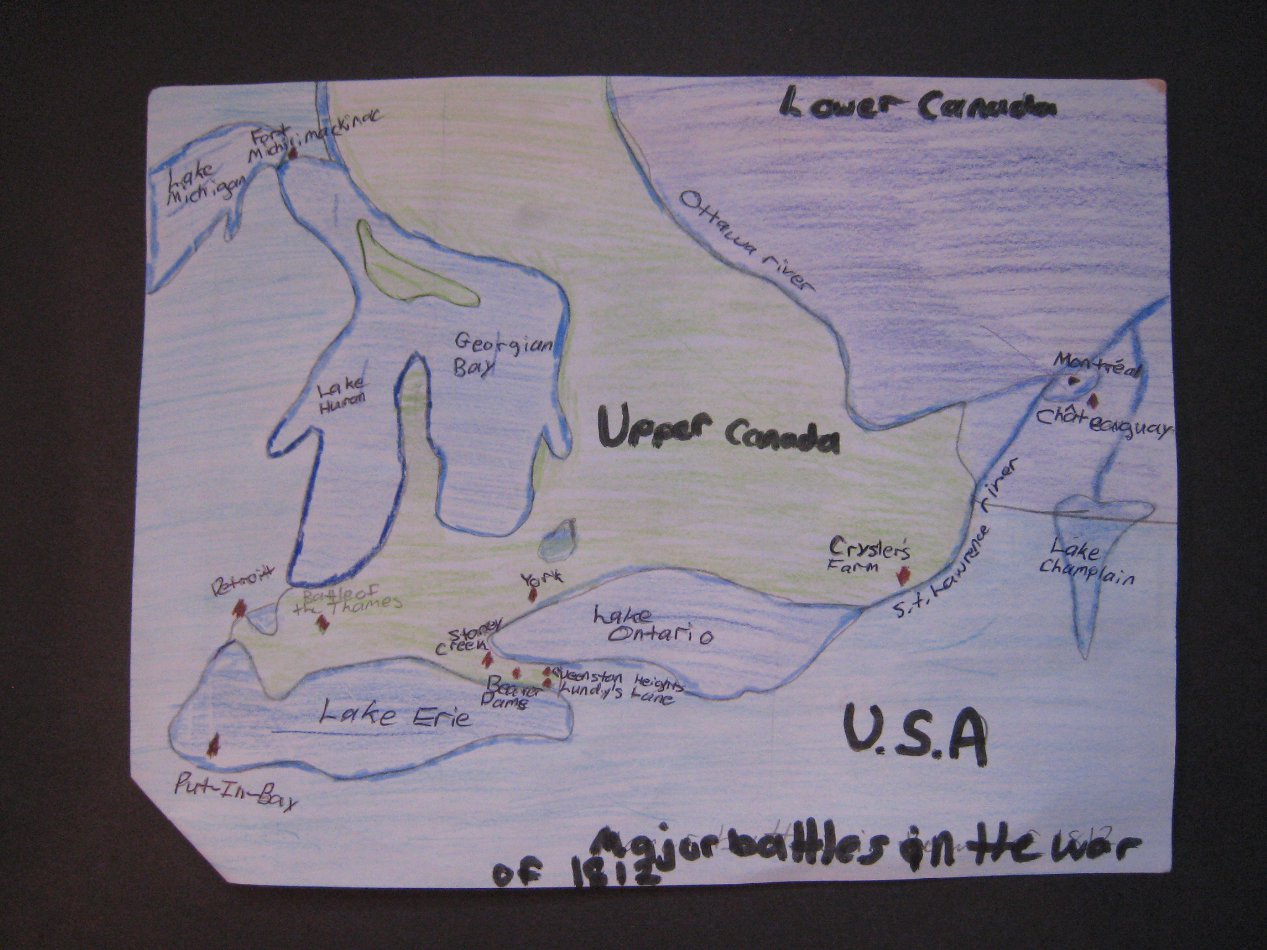 Lower Canada
Fort
Michilimackinac
Lake
Michigan
Ottawa river
Georgian
Bay
Lake
Huron
Montréal
Châteauguay
Upper Canada
S.t. Lawrence river
Lake
Champlain
Crysler's
Farm
Detroit
Battle of
the Thames
York
Lake
Ontario
Stoney
Creek
Queenston Heights
Lundy's Lane
Beaver
Dams
Lake Erie
U.S.A
Put-In-Bay
Major battles in the war
of 1812